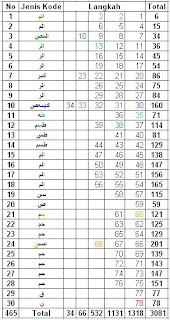 No Jenis Kode Langkah Total
1 الم 3 2 1 6
2 الم 6 5 4 15
3 المص 10 9 8 7 34
4 الر 13 12 11 36
5 الر 16 15 14 45
6 الر 19 18 17 54
7 المر 23 22 21 20 86
8 الر 26 25 24 75
9 الر 29 28 27 84
10 كهيعص 34 33 32 31 30 160
11 طه 36 35 71
12 طسم 39 38 37 114
13 طس 41 40 81
14 طسم 44 43 42 129
15 الم 47 46 45 138
16 الم 50 49 48 147
17 الم 53 52 51 156
18 الم 56 55 54 165
19 يس 58 57 115
20 ص 59 59
21 حم 61 60 121
22 حم 63 62 125
23 حم 65 64 129
24 عسق 68 67 66 201
25 حم 70 69 139
26 حم 72 71 143
27 حم 74 73 147
28 حم 76 75 151
29 ق 77 77
30 ن 78 78
465 Total 34 66 532 1131 1318 3081